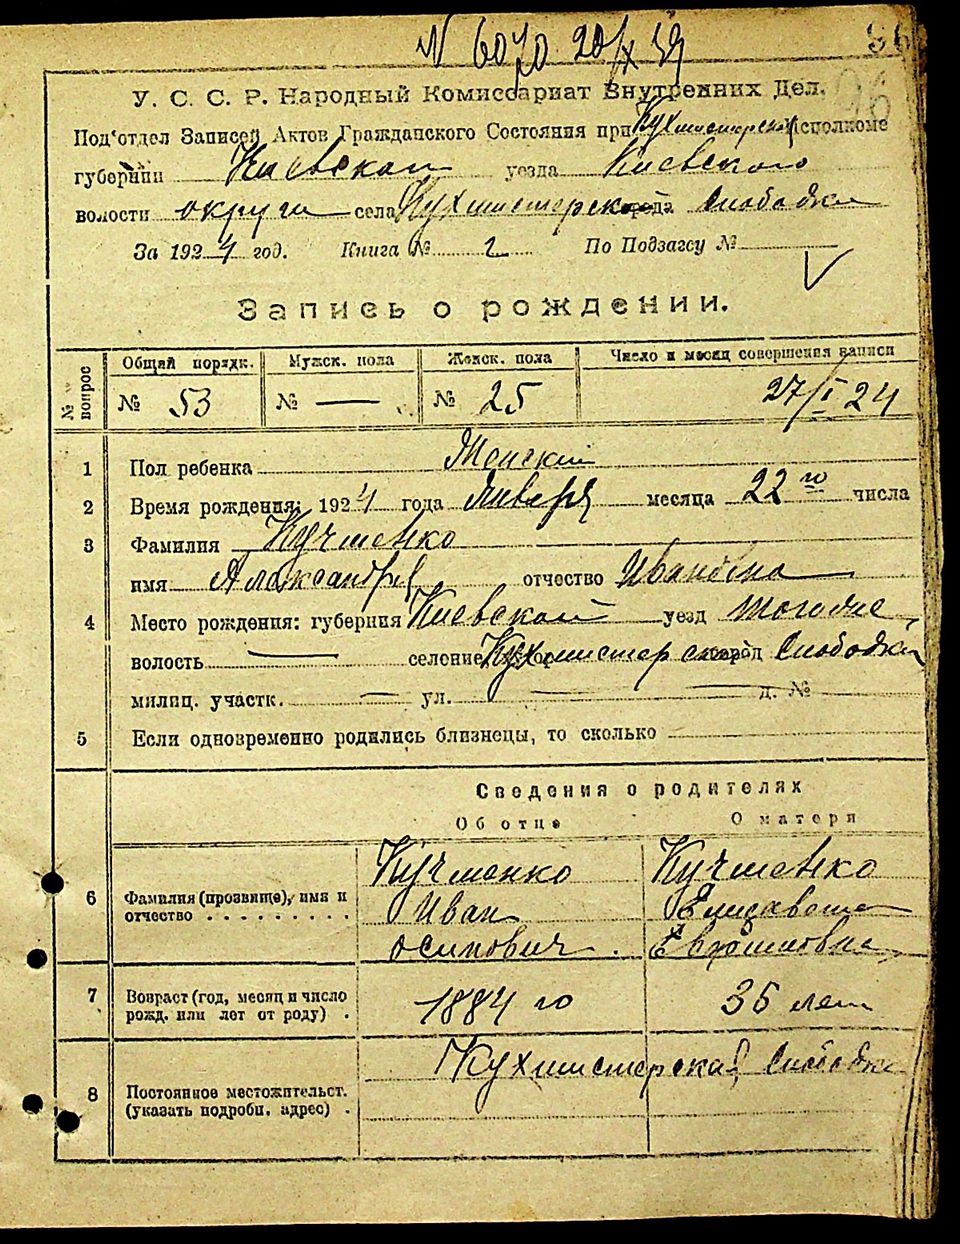 N 6070 20/X 59
86
96
У. С. С. Р. Народный Комиссариат Внутренних Дел.
Под'отдел Записей Актов Гражданского Состояния при Кухмистерской Исполкоме
губернии Киевской уезда Киевского
волости округи села Кухмистерской города Слободки
За 1924 год. Книга № 2 По Подзагсу №
Запись о рождении.
№ вопрос
Общий порядк. Мужск. пола Женск. пола Число и месяц совершения записи
№ 53 № — № 25 27/I 24
1 Пол ребенка Женский
2 Время рождения: 1924 года Января месяца 22 го числа
3 Фамилия Кучменко
имя Александра отчество Ивановна
4 Место рождения: губерния Киевской уезд тогоже,
волость — селение Кухмистерской город Слободки
милиц. участк. — ул. — д. №
5 Если одновременно родились близнецы, то сколько
Сведения о родителях
Об отце О матери
6 Фамилия (прозвище), имя и отчество
Кучменко Кучменко
Иван Елизавета
Осипович Евфимовна
7 Возраст (год, месяц и число рожд. или лет от роду)
1884 го 35 лет
8 Постоянное местожительст. (указать подробн. адрес)
Кухмистерская Слободка